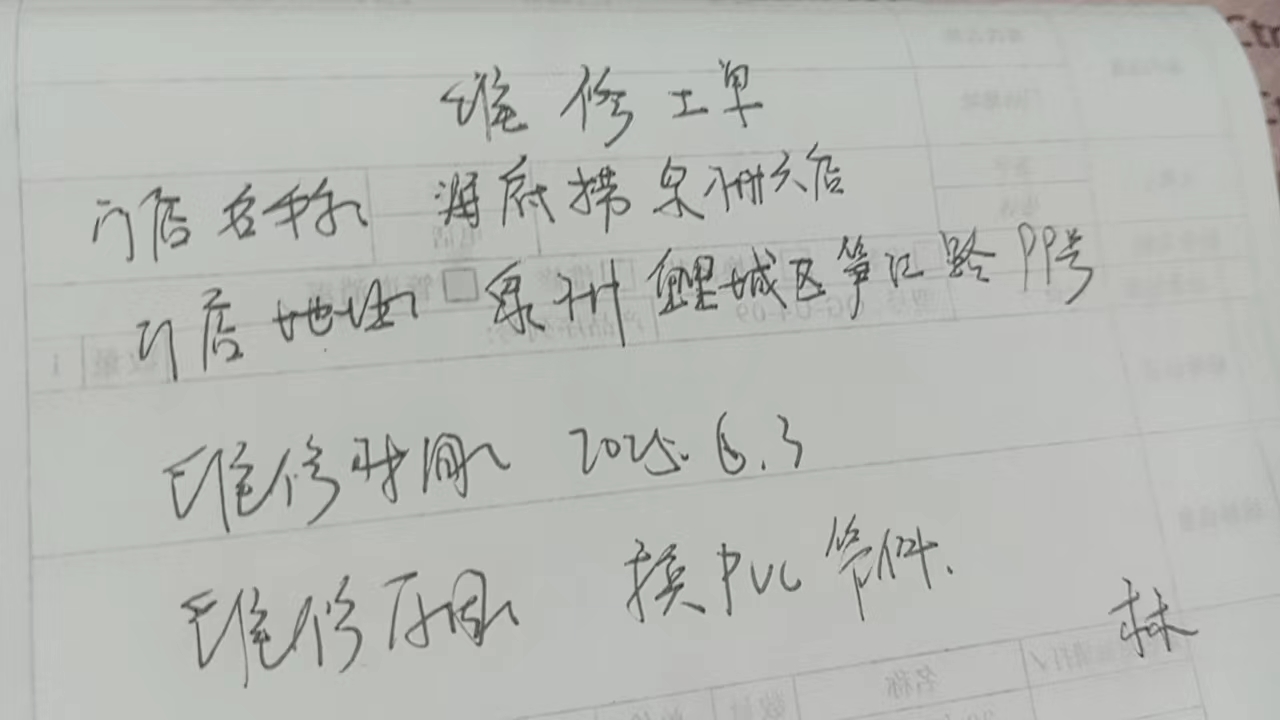 维修工单
门店名称: 海府捞泉州六店
门店地址: 泉州鲤城区笋江路99号
维修时间: 2025.6.3
维修原因: 换PVC管件.
林